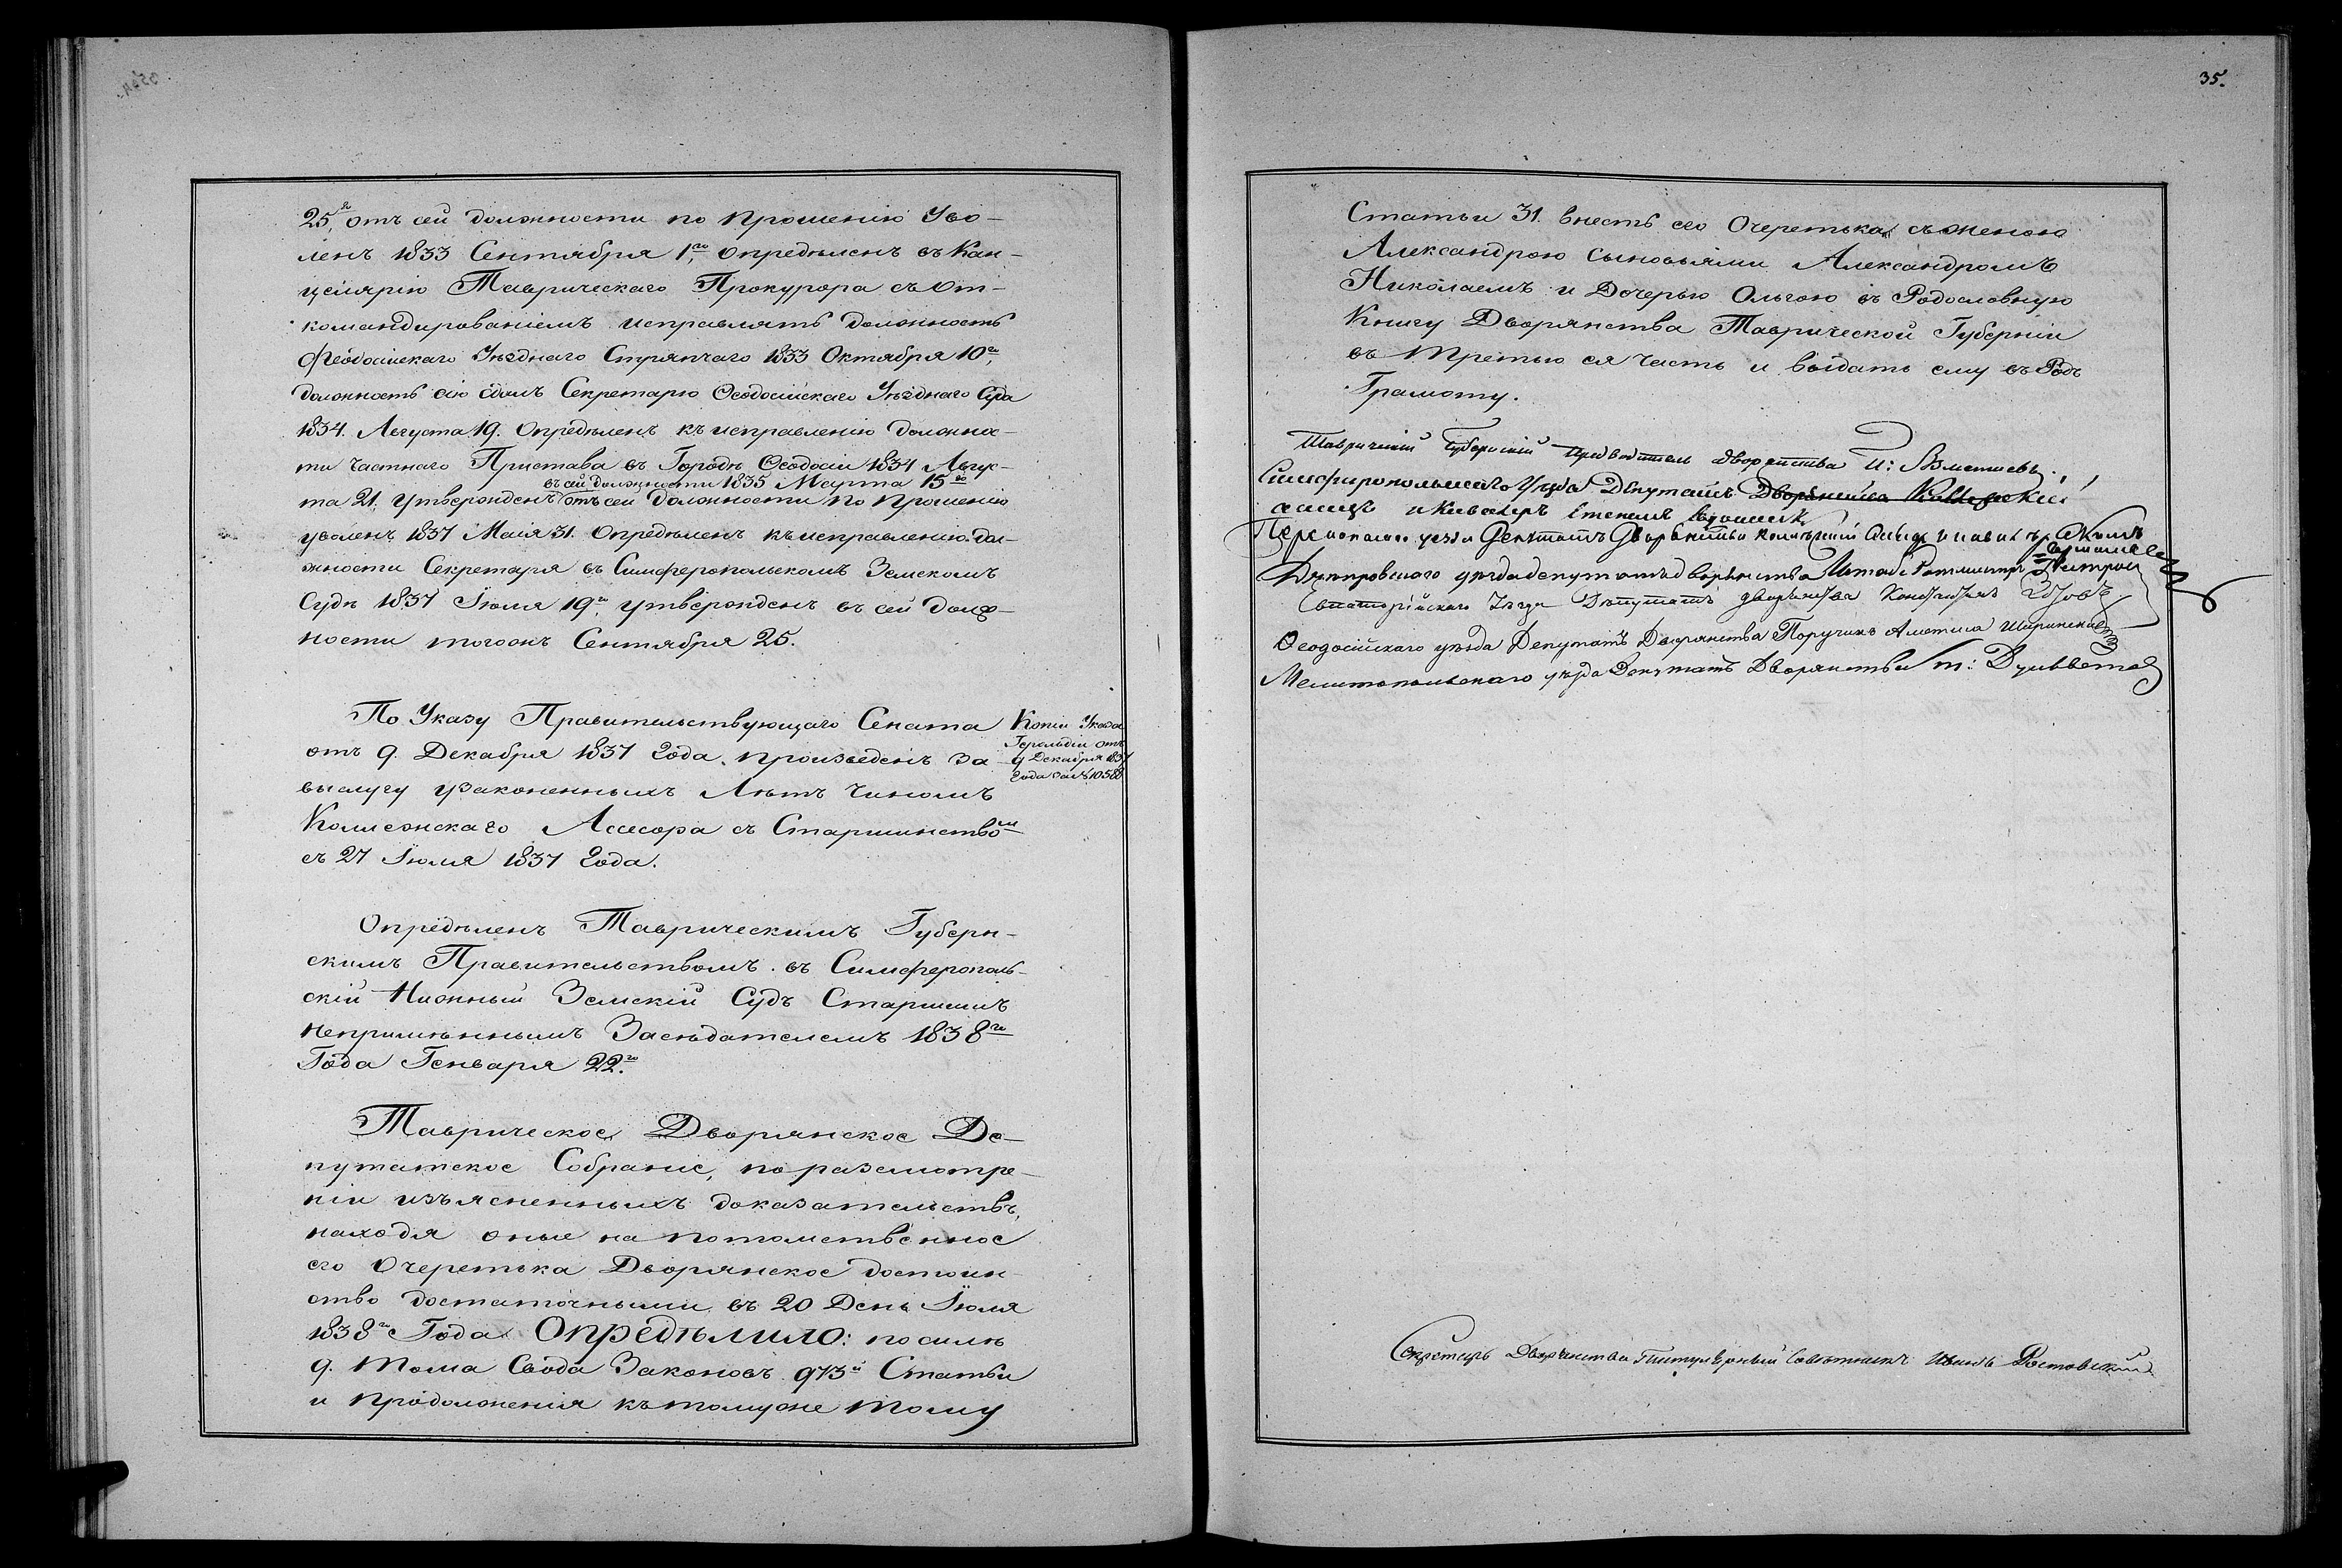 25,я отъ сей должности по прошенію уво-
ленъ 1833 Сентября 1,го опредѣленъ въ Кан-
целярію Таврическаго Прокурора съ от-
командированіемъ исправлять должность
Ѳеодосійскаго Уѣзднаго Стряпчаго 1833 Октября 10го,
должность сію сдалъ Секретарю Ѳеодосійскаго Уѣзднаго Суда
1834. Августа 19. Опредѣленъ къ исправленію должнос-
ти Частнаго Пристава въ Городѣ Ѳеодосіи 1834 Авгус-
въ сей должности 1835 Марта 15го
та 21. Утвержденъ отъ сей должности по прошенію
уволенъ 1837 Маія 31. Опредѣленъ къ исправленію дол-
жности Секретаря въ Симферопольскомъ Земскомъ
Судѣ 1837 Іюля 19го, утвержденъ въ сей долж-
ности тогожъ Сентября 25.
По Указу Правительствующаго Сената
отъ 9. Декабря 1837 года. произведенъ за
выслугу узаконенныхъ Лѣтъ Чиномъ
Коллежскаго Асесора съ Старшинствомъ
съ 27 Іюля 1837 года.
Копія Указа
Герольдіи отъ
9 Декабря 1837
года за № 10588
Опредѣленъ Таврическимъ Губерн-
скимъ Правительствомъ. въ Симферополь-
скій Нижный Земскій Судъ Старшимъ
непримѣннымъ Засѣдателемъ 1838го
Года Генваря 22.го
Таврическое Дворянское Де-
путатское Собраніе, по разсмотре-
ніи изъясненныхъ доказательствъ,
находя оные на потомственное
его Очеретька Дворянское достоин-
ство достаточными, въ 20 День Іюля
1838го Года Опредѣлило: по силѣ
9. тома Свода Законовъ 973й Статьи
и продолженія къ томуже тому
35.
Статьи 31. внесть его Очеретька съ женою
Александрою сыновьями Александромъ
Николаемъ и Дочерью Ольгою въ Родословную
Книгу Дворянства Таврической Губерніи
въ третью ея часть и выдать ему въ Родъ
Грамоту.
Таврическій Губернскій Предводитель дворянства
Симферопольскаго Уѣзда Депутатъ Дворянства
и Кавалеръ
уезда Депутатъ Дворянства
Днѣпровскаго уѣзда депутатъ дворянства Штабс Ротмистръ
Евпаторійскаго Уѣзда Депутатъ дворянства
Ѳеодосійскаго уѣзда Депутатъ Дворянства Поручикъ Аметша Ширинскій
Мелитопольскаго уѣзда Депутатъ Дворянства
Секретарь Дворянства Титулярный Совѣтникъ Ростовскій